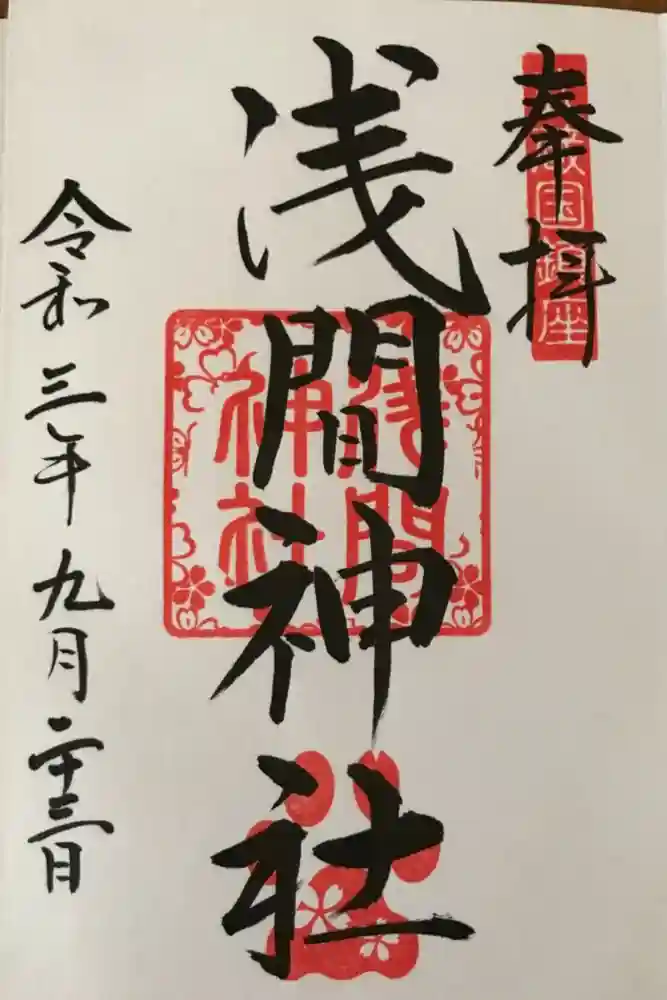 奉拝
国鎮座
浅間神社
浅間神社
令和三年九月二十三日